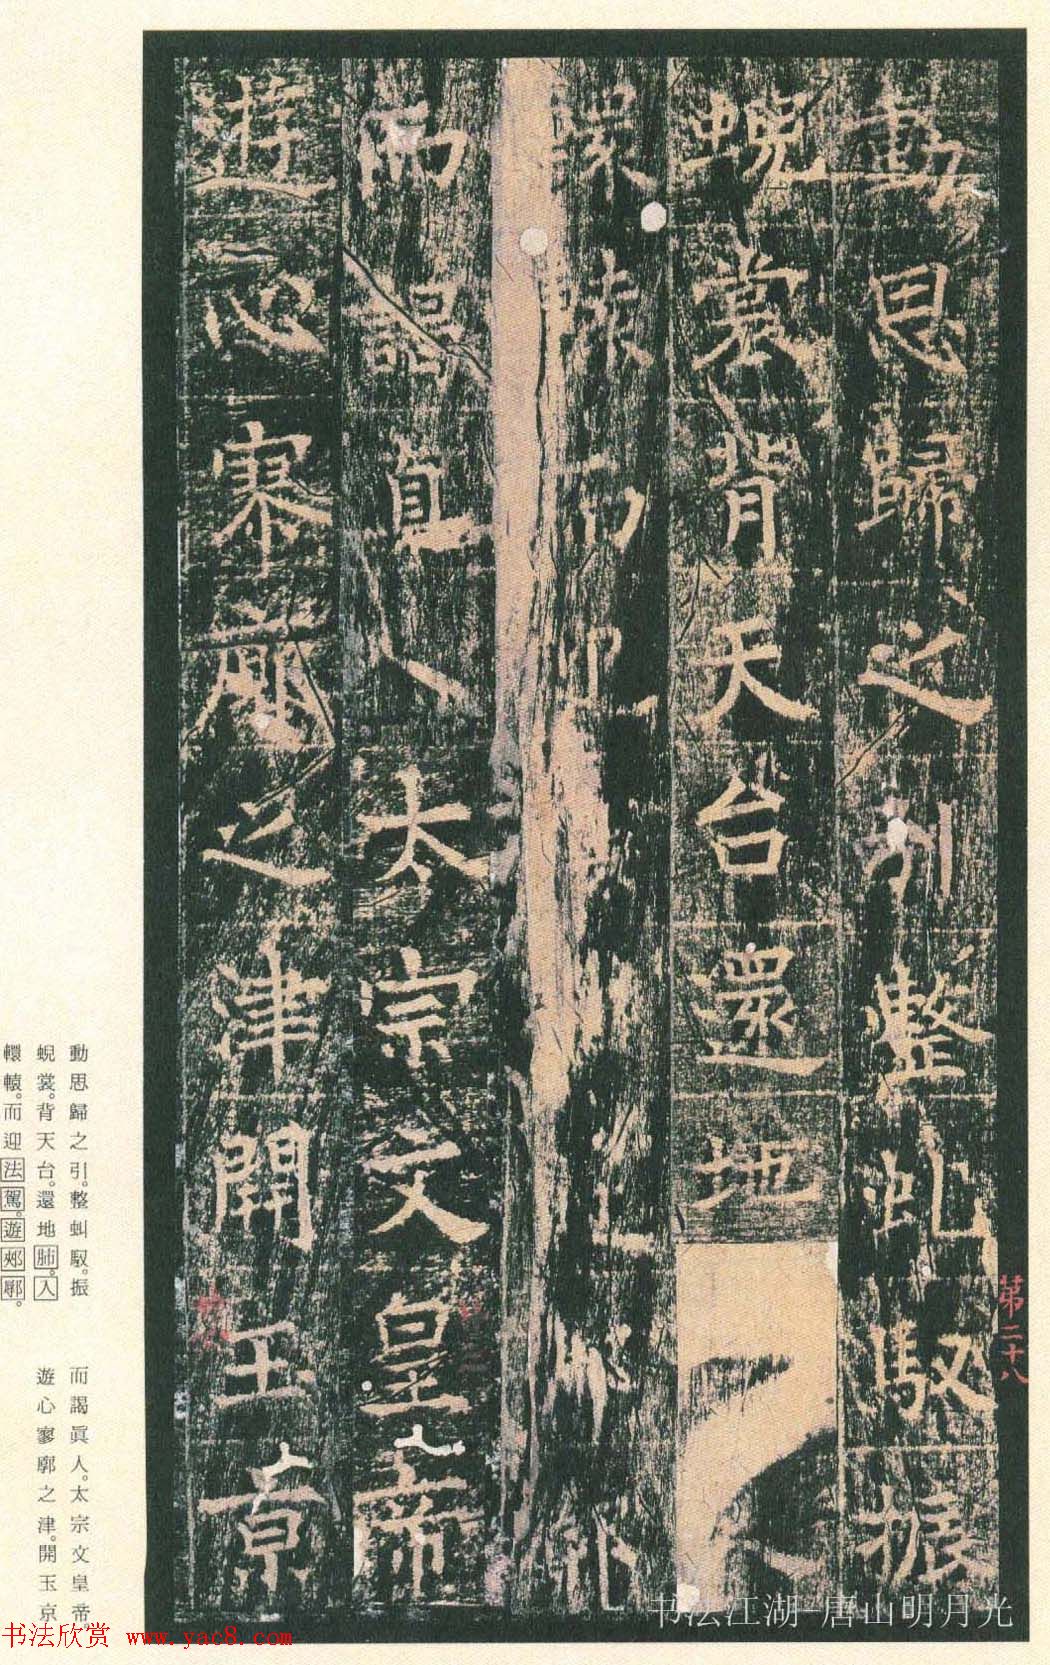 動思歸之引整虬馭振
蜺裳背天台還地
轅而迎
而謁真人太宗文皇帝
遊心寥廓之津開玉京
第二十八
動思歸之引。整虬馭。振
蜺裳。背天台。還地肺。入
轘轅。而迎法駕。遊郟鄏。
而謁眞人。太宗文皇帝。
遊心寥廓之津。開玉京
书法江湖-唐山明月光
书法欣赏 www.yac8.com